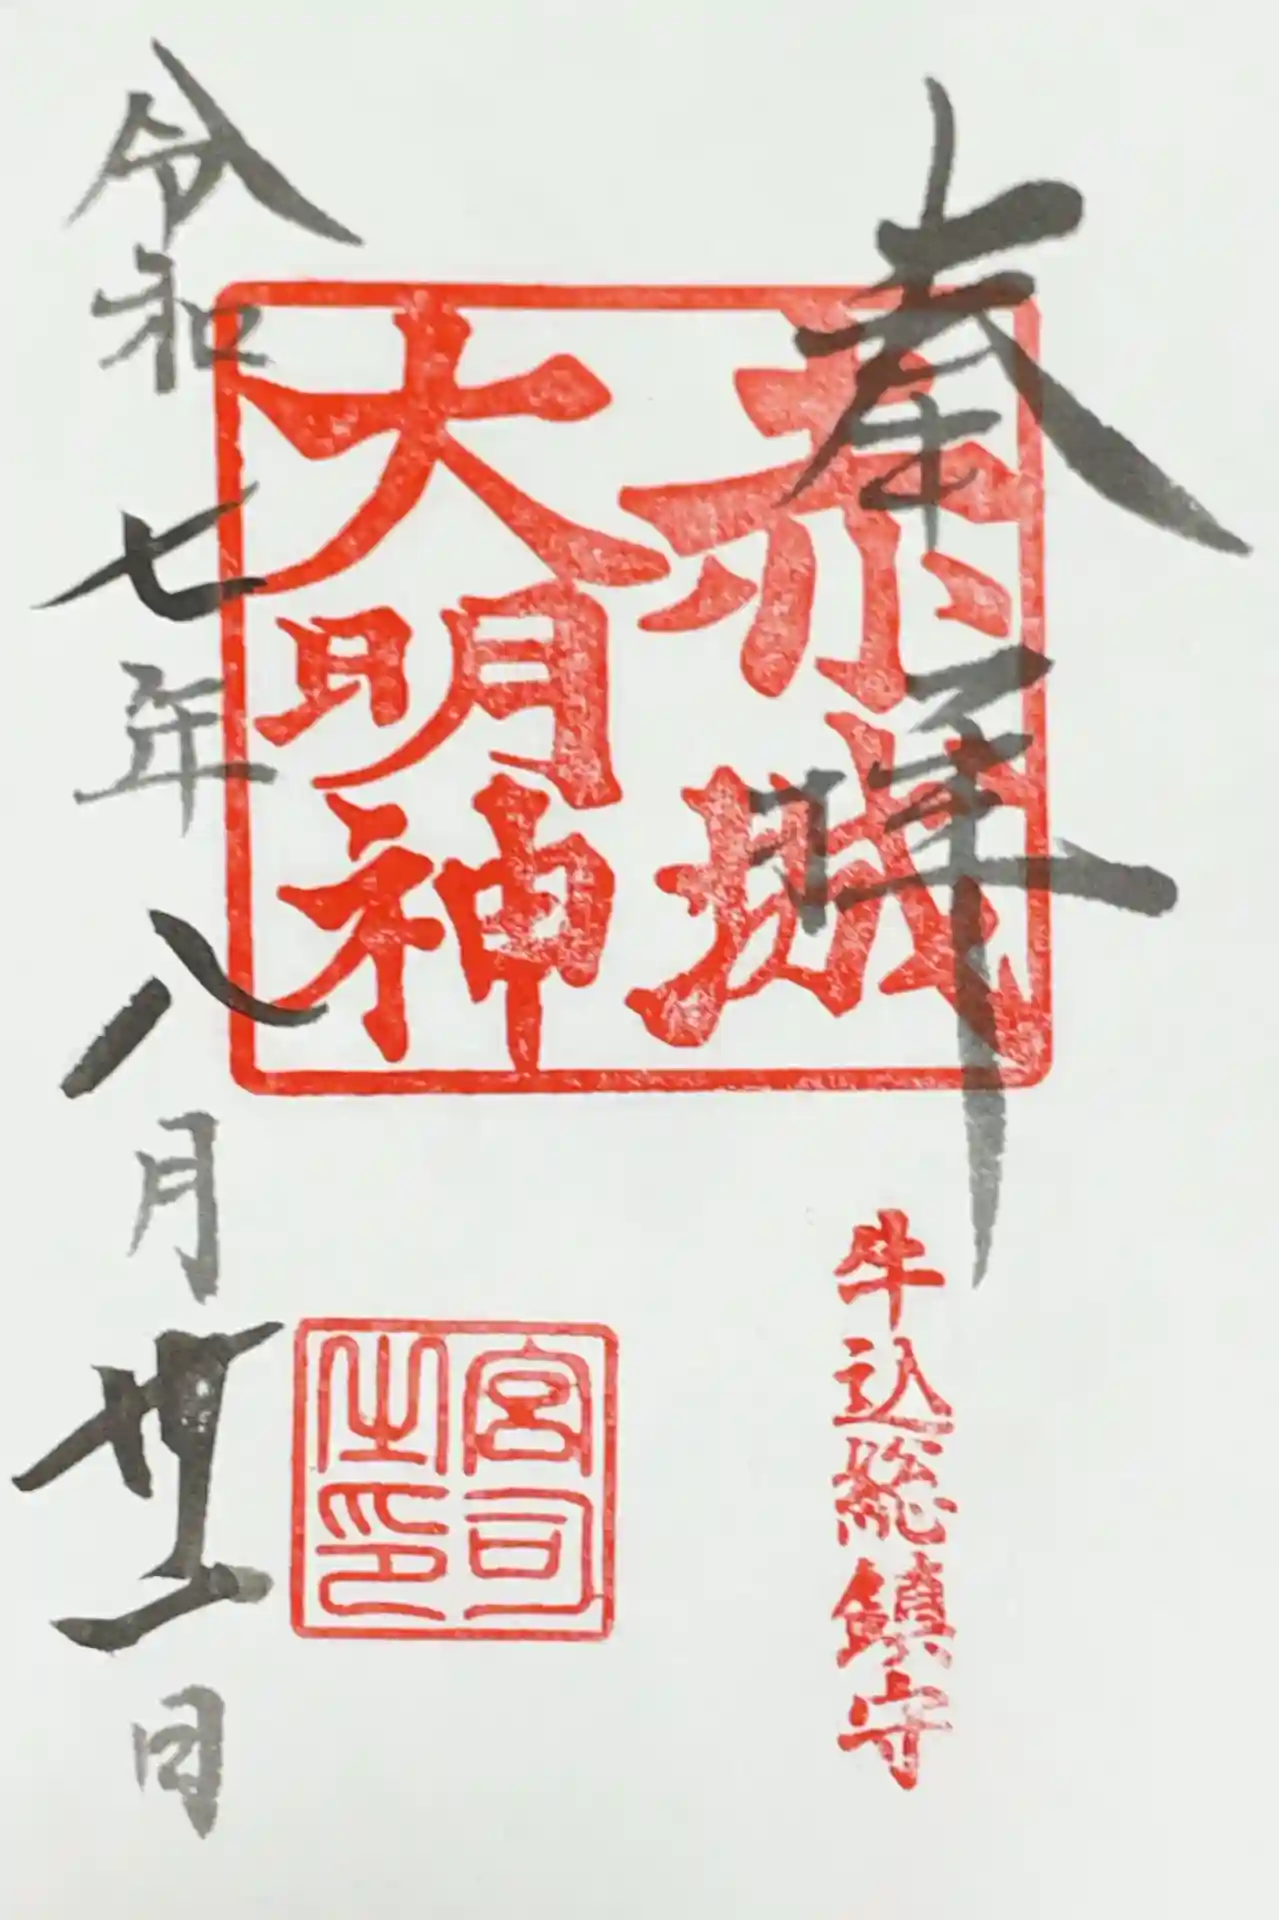 奉拝
赤城
大明神
牛込総鎮守
宮司
之印
令和七年八月日